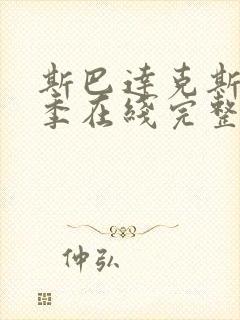 斯巴达克斯
季在线完整
仲弘